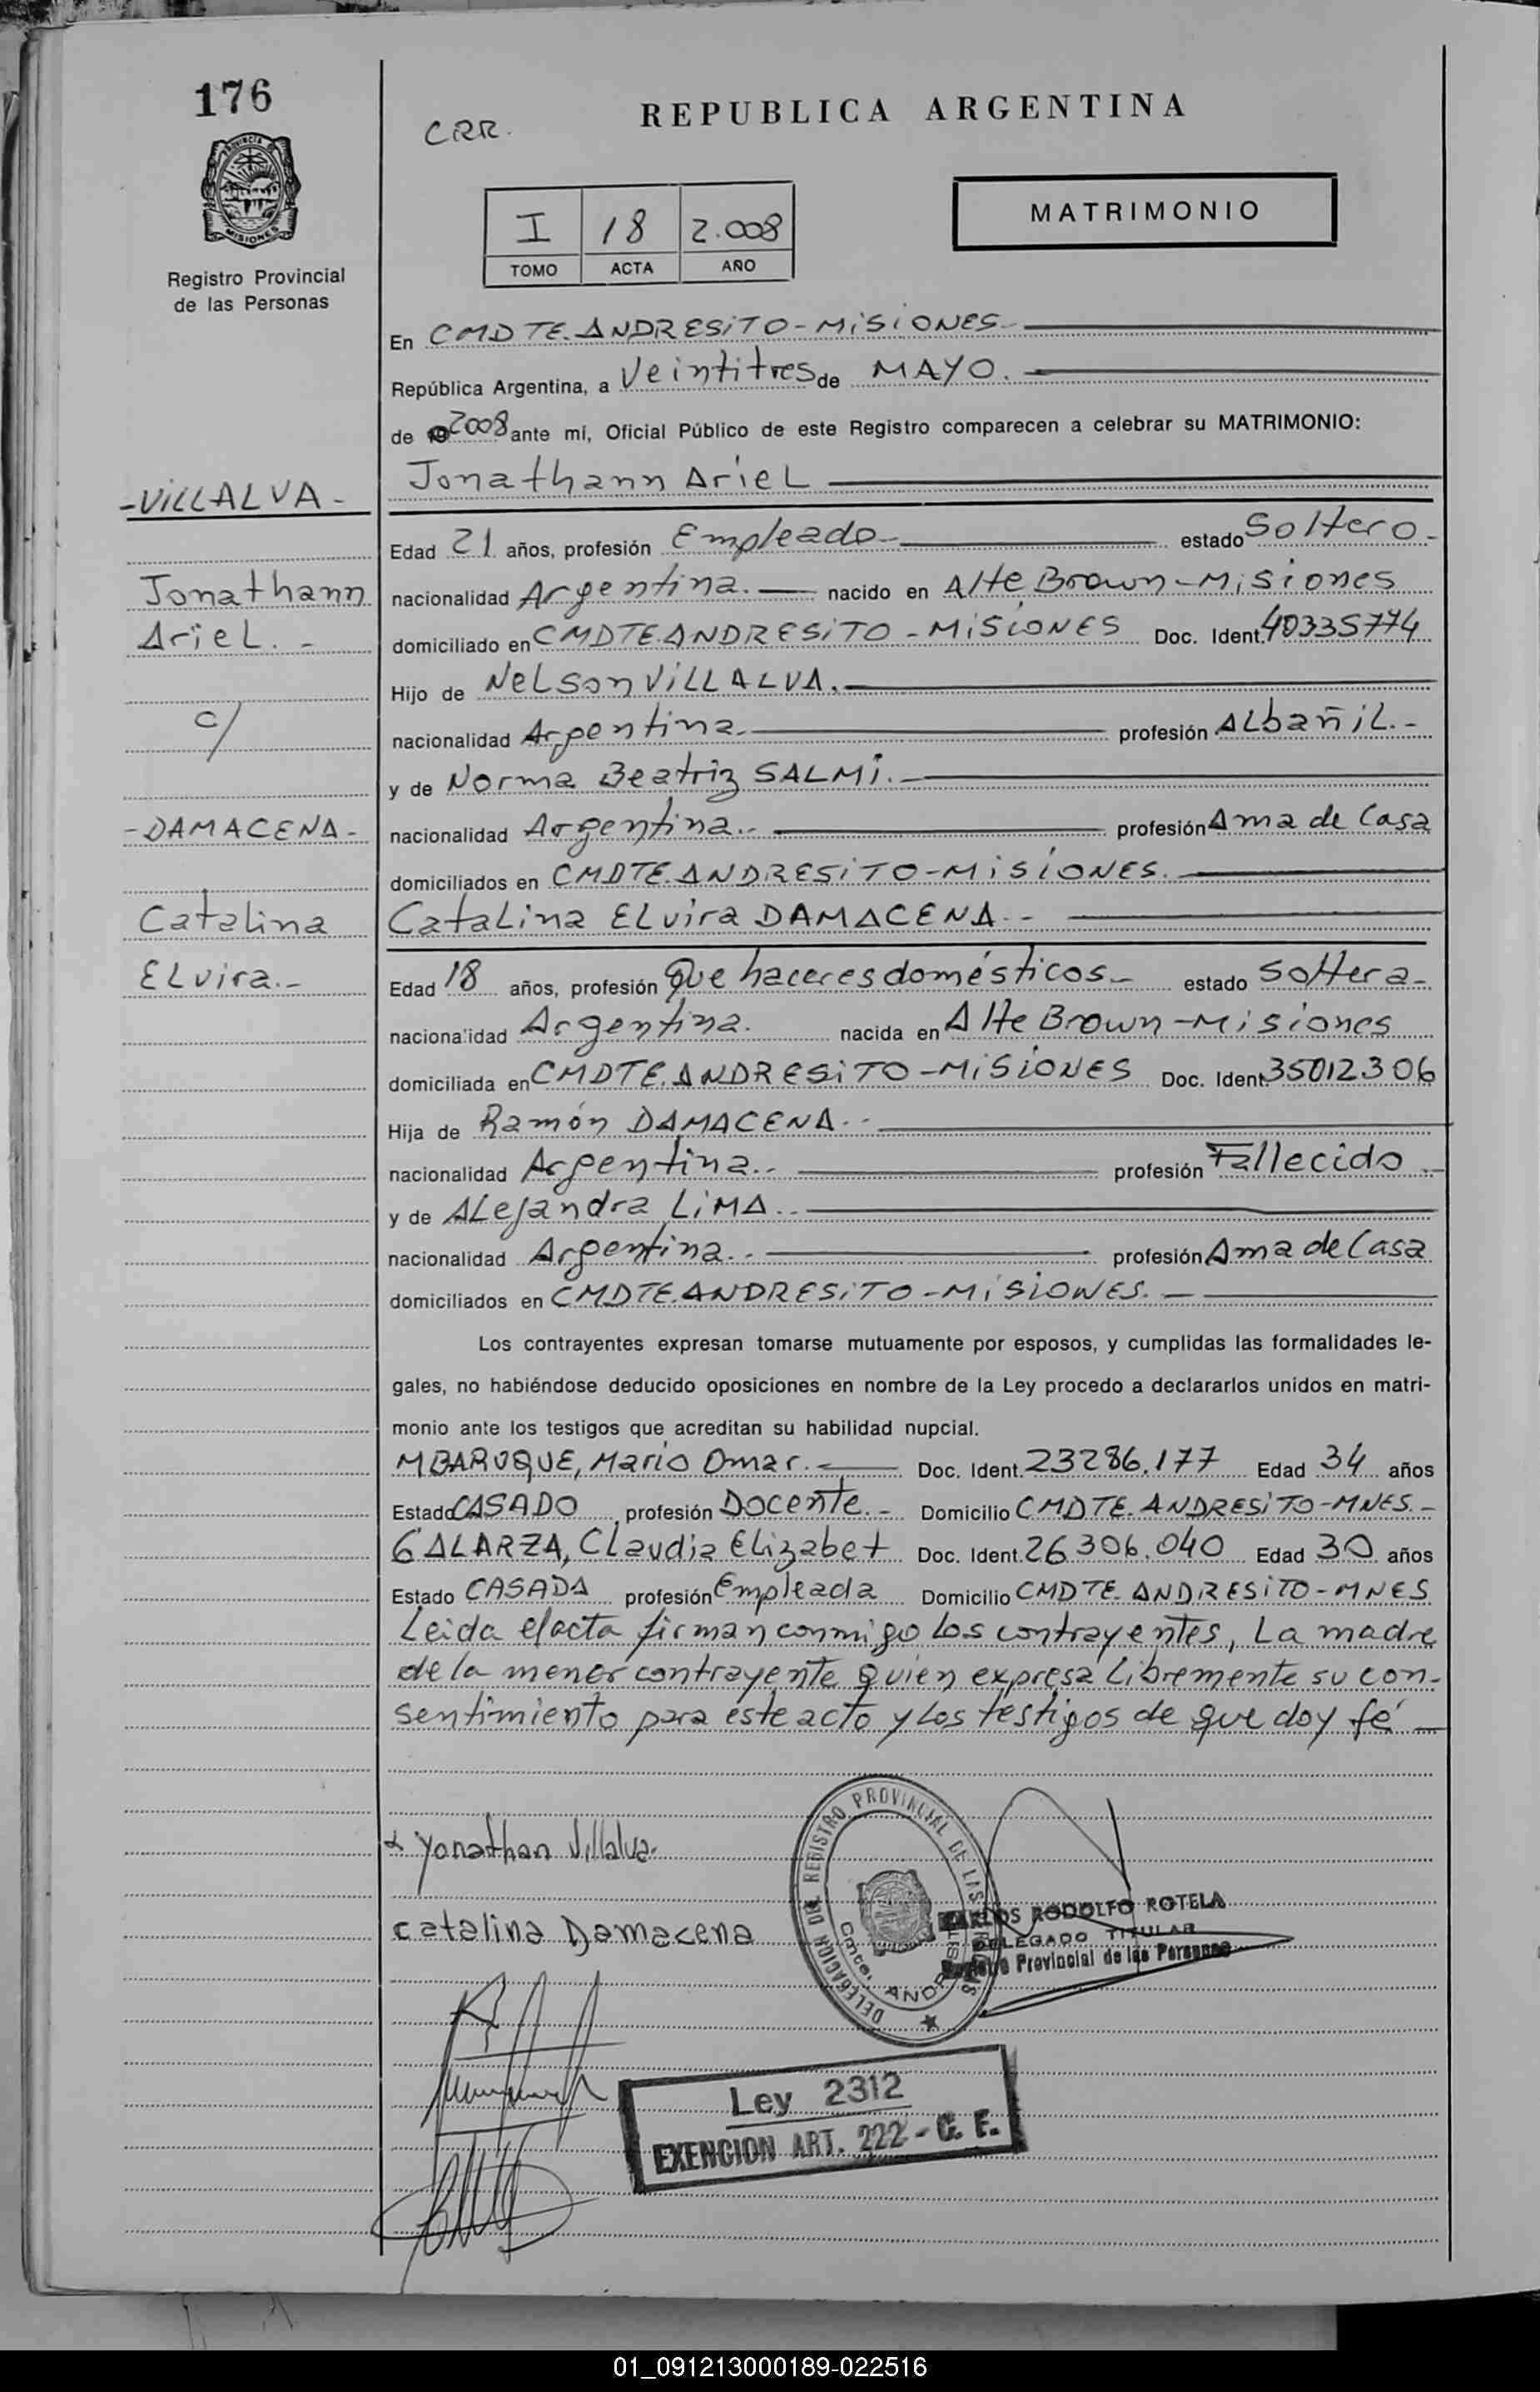 176
CRR.
REPUBLICA ARGENTINA
PROVINCIA DE
MISIONES
Registro Provincial
de las Personas
I 18 2.008
TOMO ACTA AÑO
MATRIMONIO
En CMDTE. ANDRESiTO - MiSiONES -
República Argentina, a Veintitres de MAYO.
de 2008 ante mí, Oficial Público de este Registro comparecen a celebrar su MATRIMONIO:
- ViLLALVA -
Jonathann Ariel
Edad 21 años, profesión Empleado - estado Soltero -
Jonathann
nacionalidad Argentina. - nacido en Alte Brown - Misiones
Ariel. -
domiciliado en CMDTE. ANDRESiTO - MiSiONES Doc. Ident. 40335774
Hijo de Nelson ViLLALVA. -
c/
nacionalidad Argentina. - profesión Albañil. -
y de Norma Beatriz SALMi. -
- DAMACENA -
nacionalidad Argentina. - profesión Ama de Casa
domiciliados en CMDTE. ANDRESiTO - MiSiONES.
Catalina
Catalina Elvira DAMACENA. -
Elvira. -
Edad 18 años, profesión Que haceres domésticos - estado Soltera -
nacionalidad Argentina. nacida en Alte Brown - Misiones
domiciliada en CMDTE. ANDRESiTO - MiSiONES Doc. Ident. 35012306
Hija de Ramón DAMACENA. -
nacionalidad Argentina. - profesión Fallecido -
y de Alejandra LiMA. -
nacionalidad Argentina. - profesión Ama de Casa
domiciliados en CMDTE. ANDRESiTO - MiSiONES. -
Los contrayentes expresan tomarse mutuamente por esposos, y cumplidas las formalidades le-
gales, no habiéndose deducido oposiciones en nombre de la Ley procedo a declararlos unidos en matri-
monio ante los testigos que acreditan su habilidad nupcial.
MBARUQUE, Mario Omar. - Doc. Ident. 23286.177 Edad 34 años
Estado CASADO profesión Docente. - Domicilio CMDTE. ANDRESiTO - MNES. -
GALARZA, Claudia Elizabet Doc. Ident. 26306.040 Edad 30 años
Estado CASADA profesión Empleada Domicilio CMDTE. ANDRESiTO - MNES
Leida el acta firman conmigo los contrayentes, La madre
de la menor contrayente quien expresa libremente su con-
sentimiento para este acto y Los testigos de que doy fé -
Yonathan Villalva
Catalina Damacena
DELEGACION DEL REGISTRO PROVINCIAL DE LAS
Cmte. ANDRESI
CARLOS RODOLFO ROTELA
DELEGADO TITULAR
Registro Provincial de las Personas
Ley 2312
EXENCION ART. 222 - C. F.
01_091213000189-022516